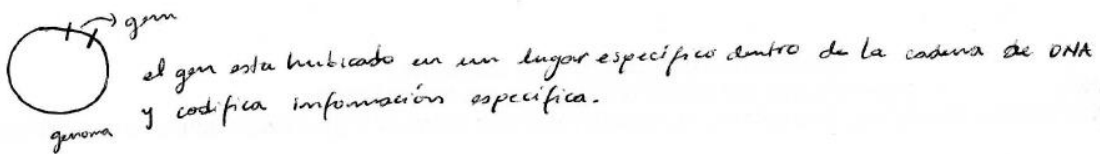 gen
el gen esta hubicado en un lugar específico dentro de la cadena de DNA
y codifica información específica.
genoma